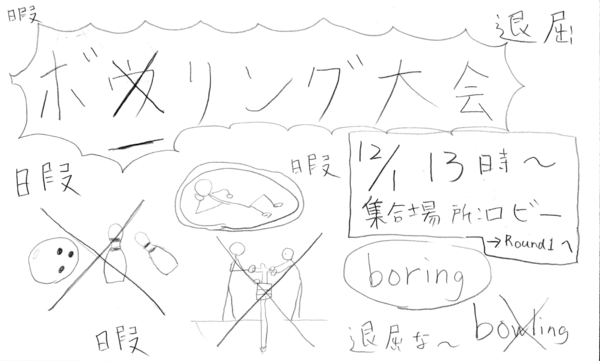 暇
退屈
ボウリング大会
日暇
暇
12/1 13時〜
集合場所:ロビー
→Round1へ
boring
暇
退屈な〜
bowling